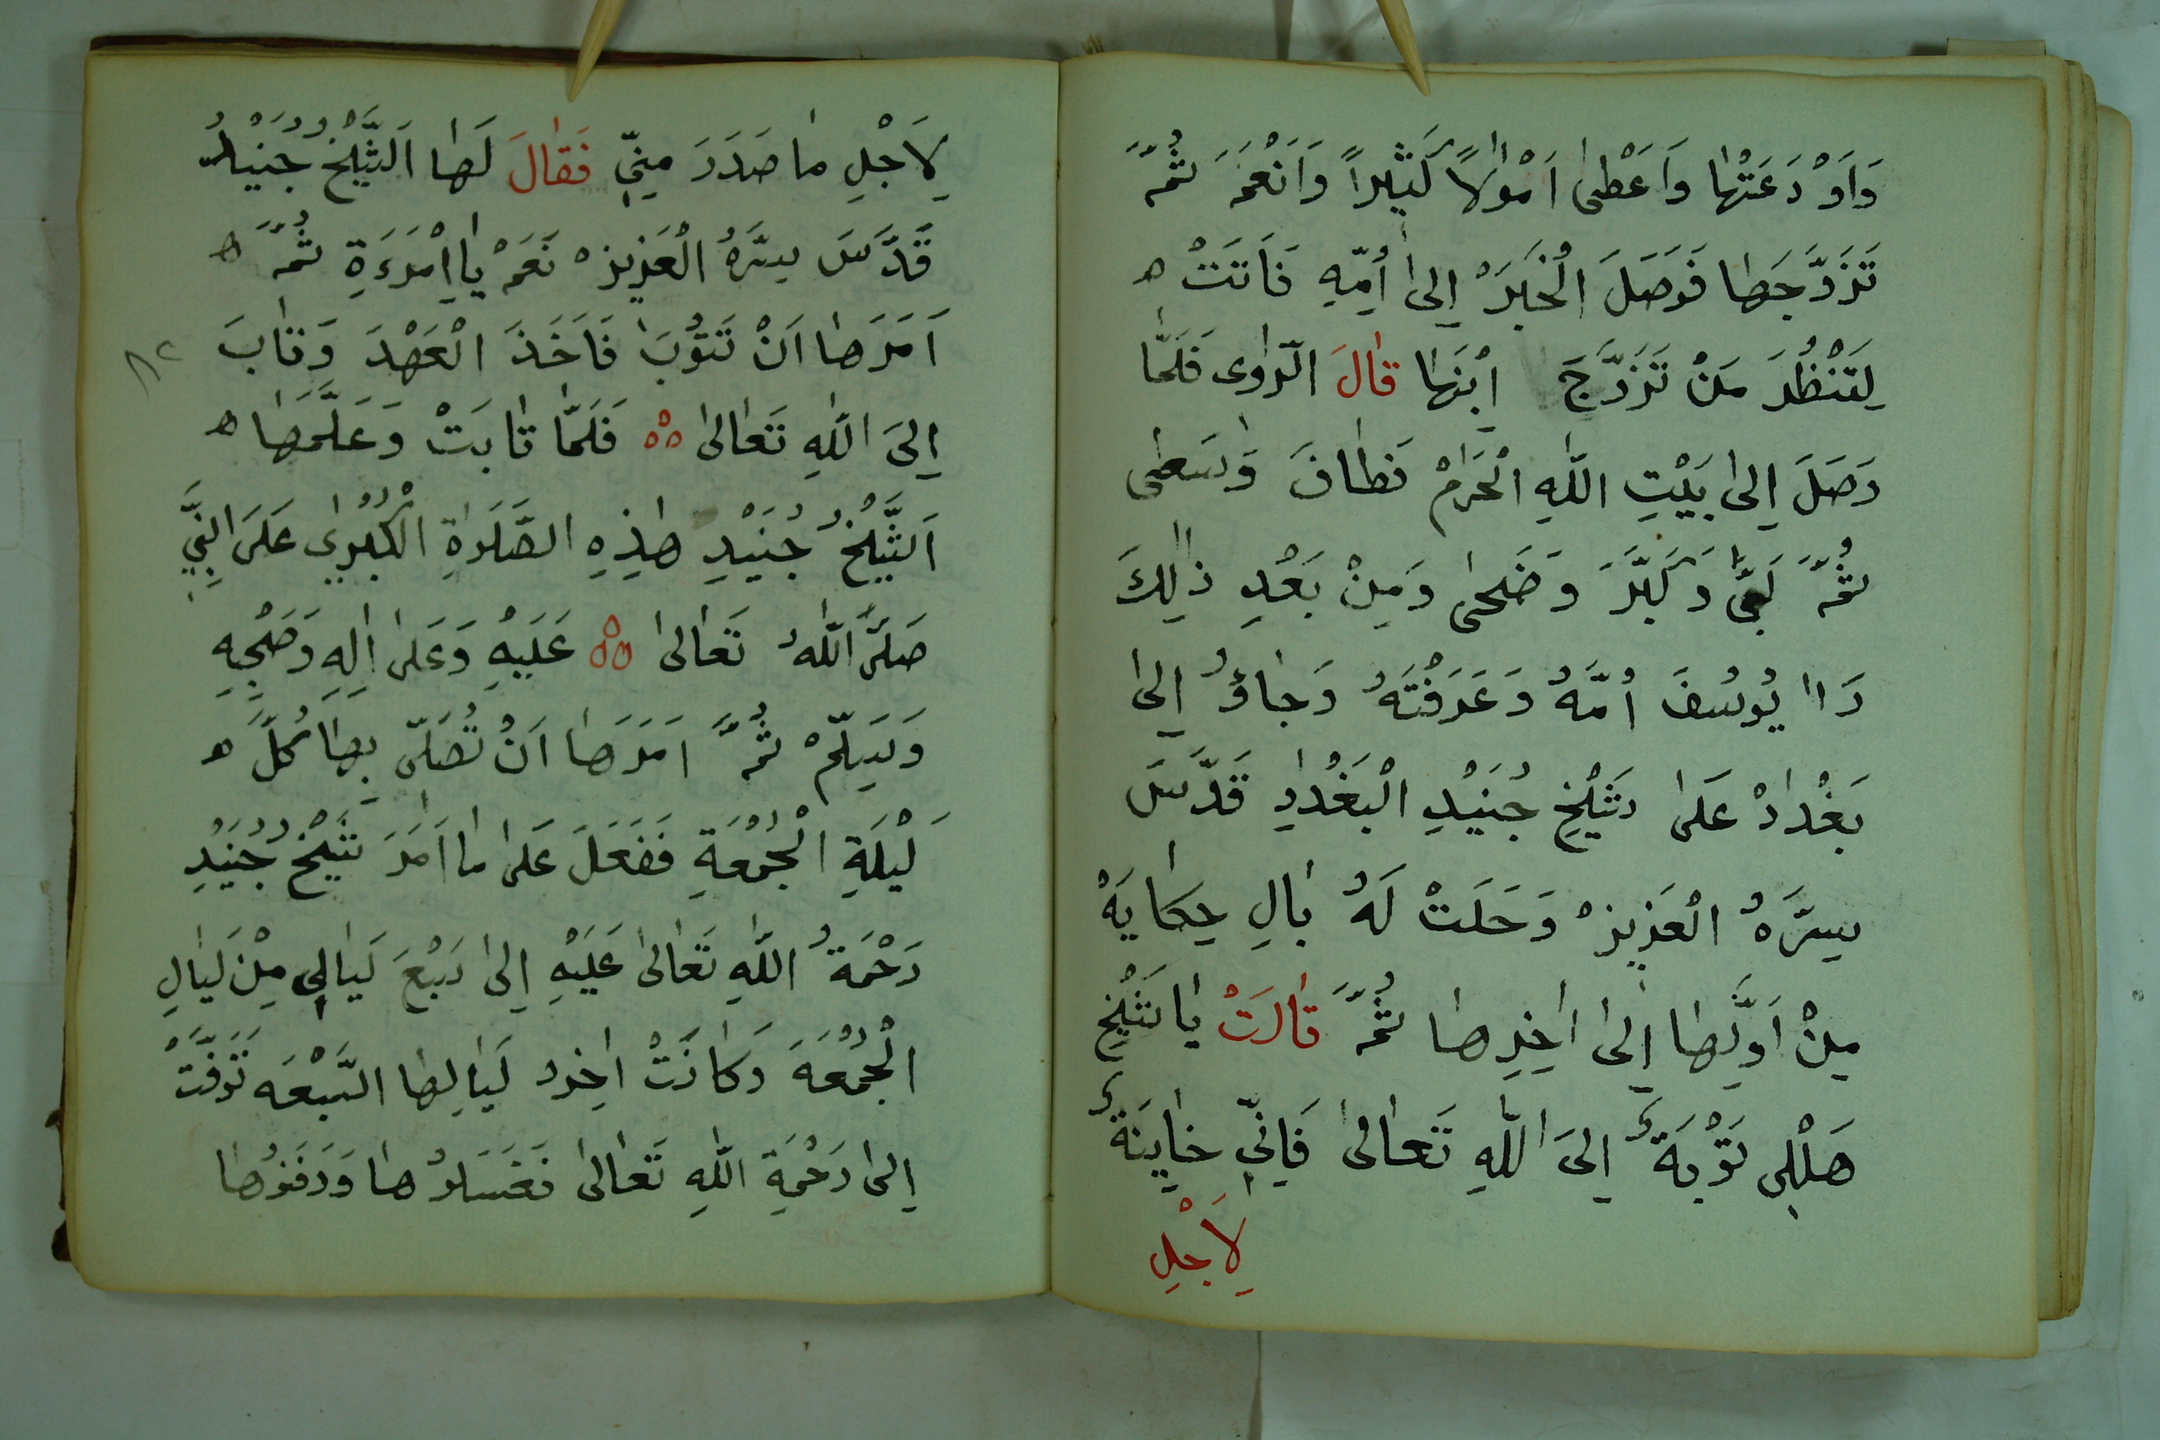 وَاَوْدَعَتْهٰا وَاَعْطٰى اَمْوٰالاً كَثٖيراً وَاَنْعَمَ ثُمَّ
تَزَوَّجَهٰا فَوَصَلَ الْخَبَرْ اِلىٰ اُمِّهٖ فَاَتَتْ ه
لِتَنْظُرَ مَنْ تَزَوَّجَ اِبْنَهٰا قٰالَ الرّٰوى فَلَمّٰا
وَصَلَ اِلىٰ بَيْتِ اللّٰهِ الْحَرٰامْ فَطٰافَ وَسَعٰى
ثُمَّ لَبّٰى وَكَبَّرَ وَضَحىٰ وَمِنْ بَعْدِ ذٰلِكَ
رَاا يُوسُفَ اُمَّهُ وَعَرَفْتَهُ وَجٰاؤُ اِلىٰ
بَغْدٰادْ عَلىٰ شَيْخِ جُنَيْدِ الْبَغْدٰادِ قَدَّسَ
سِرَّهُ الْعَزٖيزْ وَحَلَتْ لَهُ بٰالِ حِكٰايَهْ
مِنْ اَوَّلِهٰا اِلىٰ اٰخِرِهٰا ثُمَّ قٰالَتْ يٰا شَيْخِ
هَلْلٖى تَوْبَةٌ اِلىَ اللّٰهِ تَعٰالىٰ فَاِنّٖى خٰايِنَةٌ
لِاَجْلِ
لِاَجْلِ مٰا صَدَرَ مِنّٖى فَقٰالَ لَهٰا اَلشَّيْخُ جُنَيْدُ
قَدَّسَ سِرَّهُ الْعَزٖيزْ نَعَمْ يٰا اِمْرَءَةِ ثُمَّ ه
اَمَرَهٰا اَنْ تَتُوْبَ فَاَخَذَ الْعَهْدَ وَتٰابَ
٨٢
اِلىَ اللّٰهِ تَعٰالىٰ فَلَمّٰا تٰابَتْ وَعَلَّمَهٰا ه
اَلشَّيْخُ جُنَيْدِ هٰذِهِ الصَّلَوٰةِ الْكُبْرٰى عَلَى النَّبِىِّ
صَلَّى اللّٰهُ تَعٰالىٰ عَلَيْهِ وَعَلىٰ اٰلِهِ وَصَحْبِهِ
وَسَلِّمْ ثُمَّ اَمَرَهٰا اَنْ تُصَلّى بِهٰا كُلَّ ه
لَيْلَةِ الْجُمُعَةِ فَفَعَلَ عَلىٰ مٰا اَمَرَ شَيْخُ جُنَيْدِ
رَحْمَةُ اللّٰهِ تَعٰالىٰ عَلَيْهِ اِلىٰ سَبْعَ لَيٰالٖى مِنْ لَيٰالِ
الْجُمُعَهَ وَكٰانَتْ اٰخِرُ لَيٰالِهٰا السَّبْعَه تَوَفَّتْ
اِلىٰ رَحْمَةِ اللّٰهِ تَعٰالىٰ فَغَسَلُوهٰا وَدَفَنُوهٰا